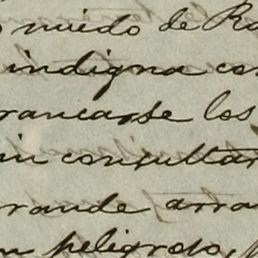 miedo de Ra
indigna con
rancarse los
in consultar
rande arra
un peligroso,